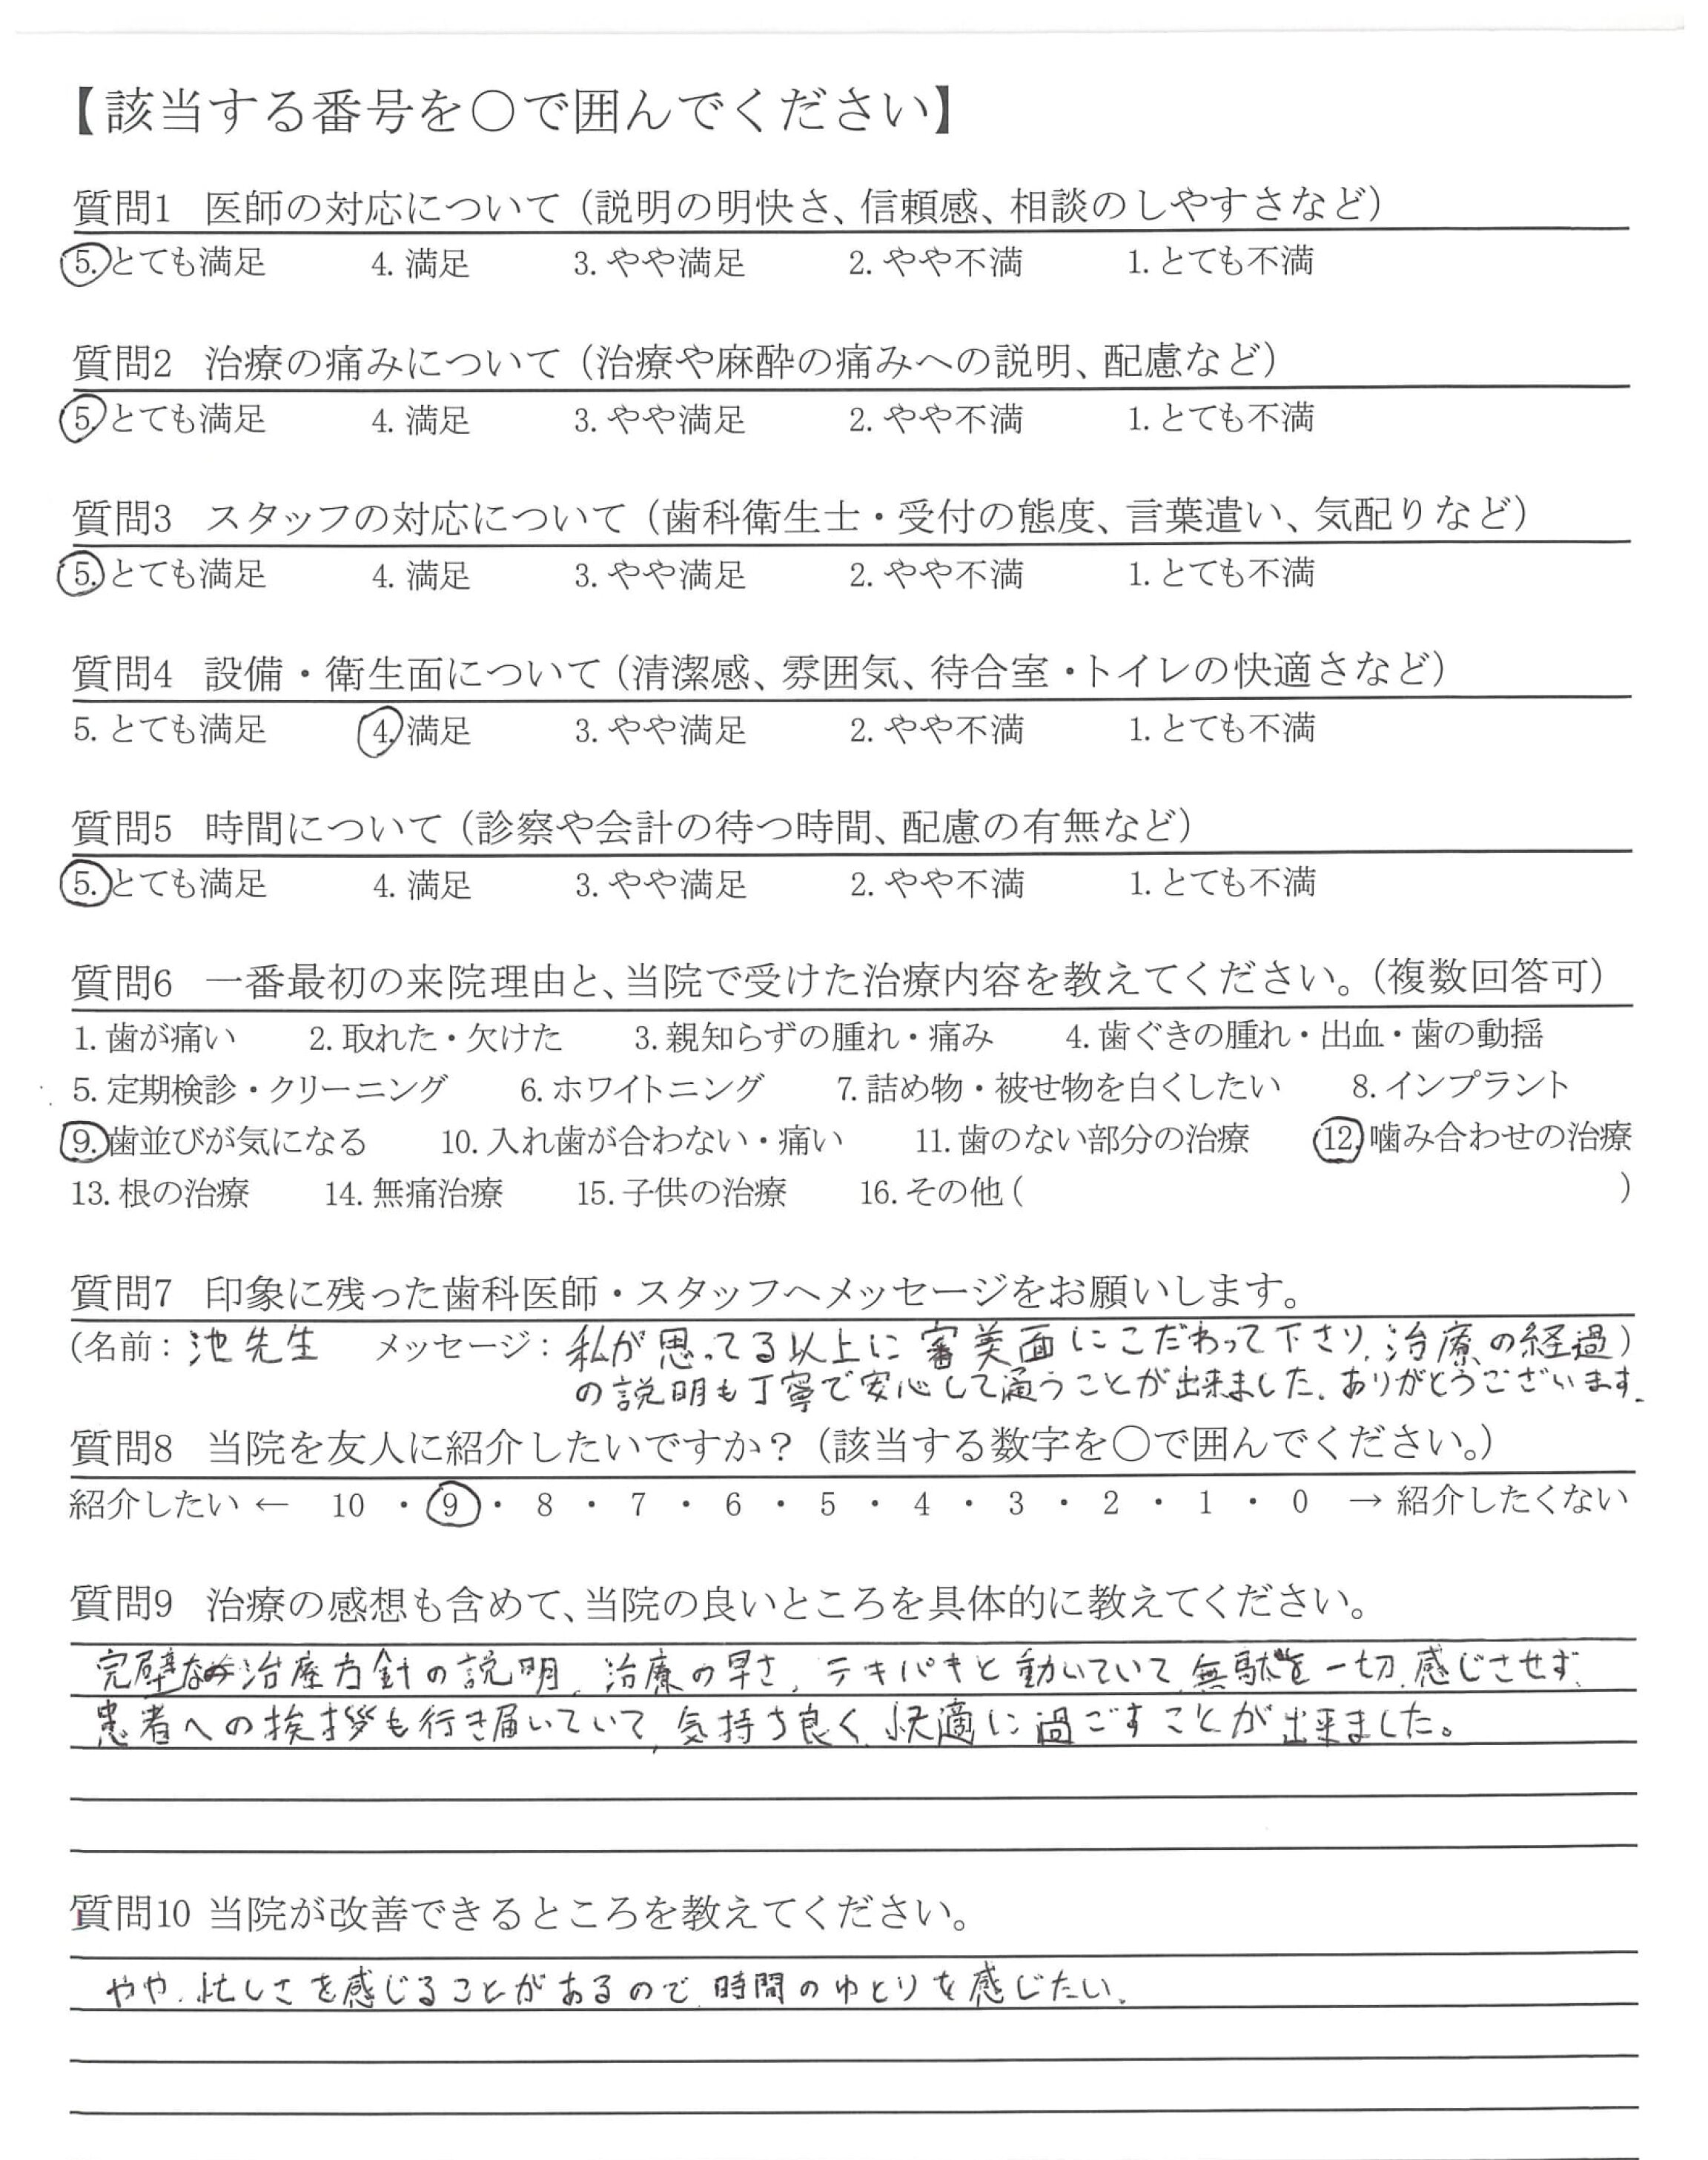 【該当する番号を〇で囲んでください】
質問1 医師の対応について（説明の明快さ、信頼感、相談のしやすさなど）
5. とても満足 4. 満足 3. やや満足 2. やや不満 1. とても不満
質問2 治療の痛みについて（治療や麻酔の痛みへの説明、配慮など）
5. とても満足 4. 満足 3. やや満足 2. やや不満 1. とても不満
質問3 スタッフの対応について（歯科衛生士・受付の態度、言葉遣い、気配りなど）
5. とても満足 4. 満足 3. やや満足 2. やや不満 1. とても不満
質問4 設備・衛生面について（清潔感、雰囲気、待合室・トイレの快適さなど）
5. とても満足 4. 満足 3. やや満足 2. やや不満 1. とても不満
質問5 時間について（診察や会計の待つ時間、配慮の有無など）
5. とても満足 4. 満足 3. やや満足 2. やや不満 1. とても不満
質問6 一番最初の来院理由と、当院で受けた治療内容を教えてください。（複数回答可）
1. 歯が痛い 2. 取れた・欠けた 3. 親知らずの腫れ・痛み 4. 歯ぐきの腫れ・出血・歯の動揺
5. 定期検診・クリーニング 6. ホワイトニング 7. 詰め物・被せ物を白くしたい 8. インプラント
9. 歯並びが気になる 10. 入れ歯が合わない・痛い 11. 歯のない部分の治療 12. 噛み合わせの治療
13. 根の治療 14. 無痛治療 15. 子供の治療 16. その他（ ）
質問7 印象に残った歯科医師・スタッフへメッセージをお願いします。
（名前：池先生 メッセージ：私が思ってる以上に審美面にこだわって下さり、治療の経過）
の説明も丁寧で安心して通うことが出来ました。ありがとうございます。
質問8 当院を友人に紹介したいですか？（該当する数字を〇で囲んでください。）
紹介したい ← 10 ・ 9 ・ 8 ・ 7 ・ 6 ・ 5 ・ 4 ・ 3 ・ 2 ・ 1 ・ 0 → 紹介したくない
質問9 治療の感想も含めて、当院の良いところを具体的に教えてください。
完璧な治療方針の説明、治療の早さ、テキパキと動いていて、無駄を一切、感じさせず、
患者への挨拶も行き届いていて、気持ち良く、快適に過ごすことが出来ました。
質問10 当院が改善できるところを教えてください。
やや、忙しさを感じることがあるので、時間のゆとりを感じたい。